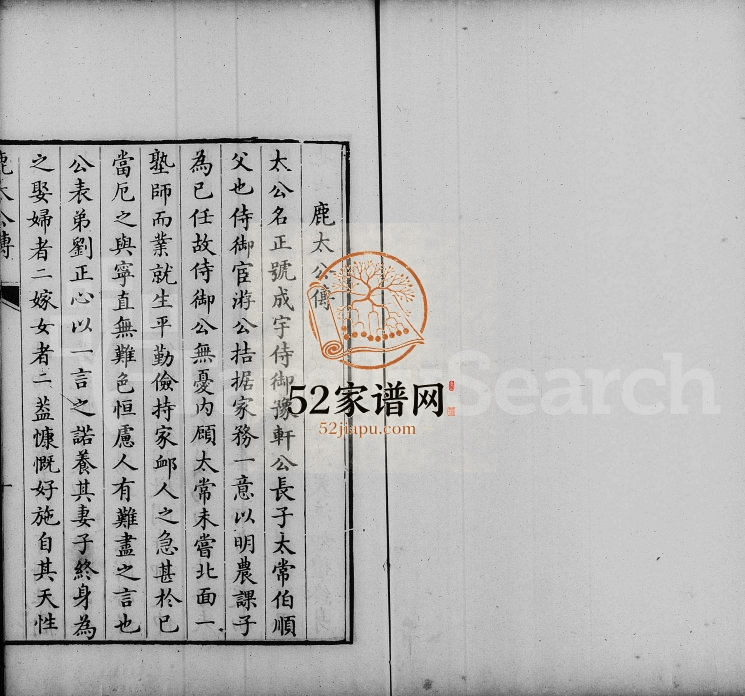 鹿太公傳
太公名正號成宇侍御豫軒公長子太常伯順
父也侍御官游公拮据家務一意以明農課子
為已任故侍御公無憂內顧太常未嘗北面一
塾師而業就生平勤儉持家衈人之急甚於已
當厄之與寧直無難色恒慮人有難盡之言也
公表弟劉正心以一言之諾養其妻子終身為
之娶婦者二嫁女者二葢慷慨好施自其天性
鹿太公傳
52家谱网
52jiapu.com
Search